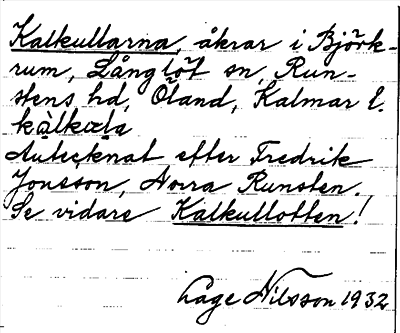 Kalkullarna, åkrar i Björk-
rum, Långlöt sn, Run-
stens hd, Öland, Kalmar l.
Antecknat efter Fredrik
Jonsson, Norra Runsten.
Se vidare Kalkullotten!
Lage Nilsson 1932